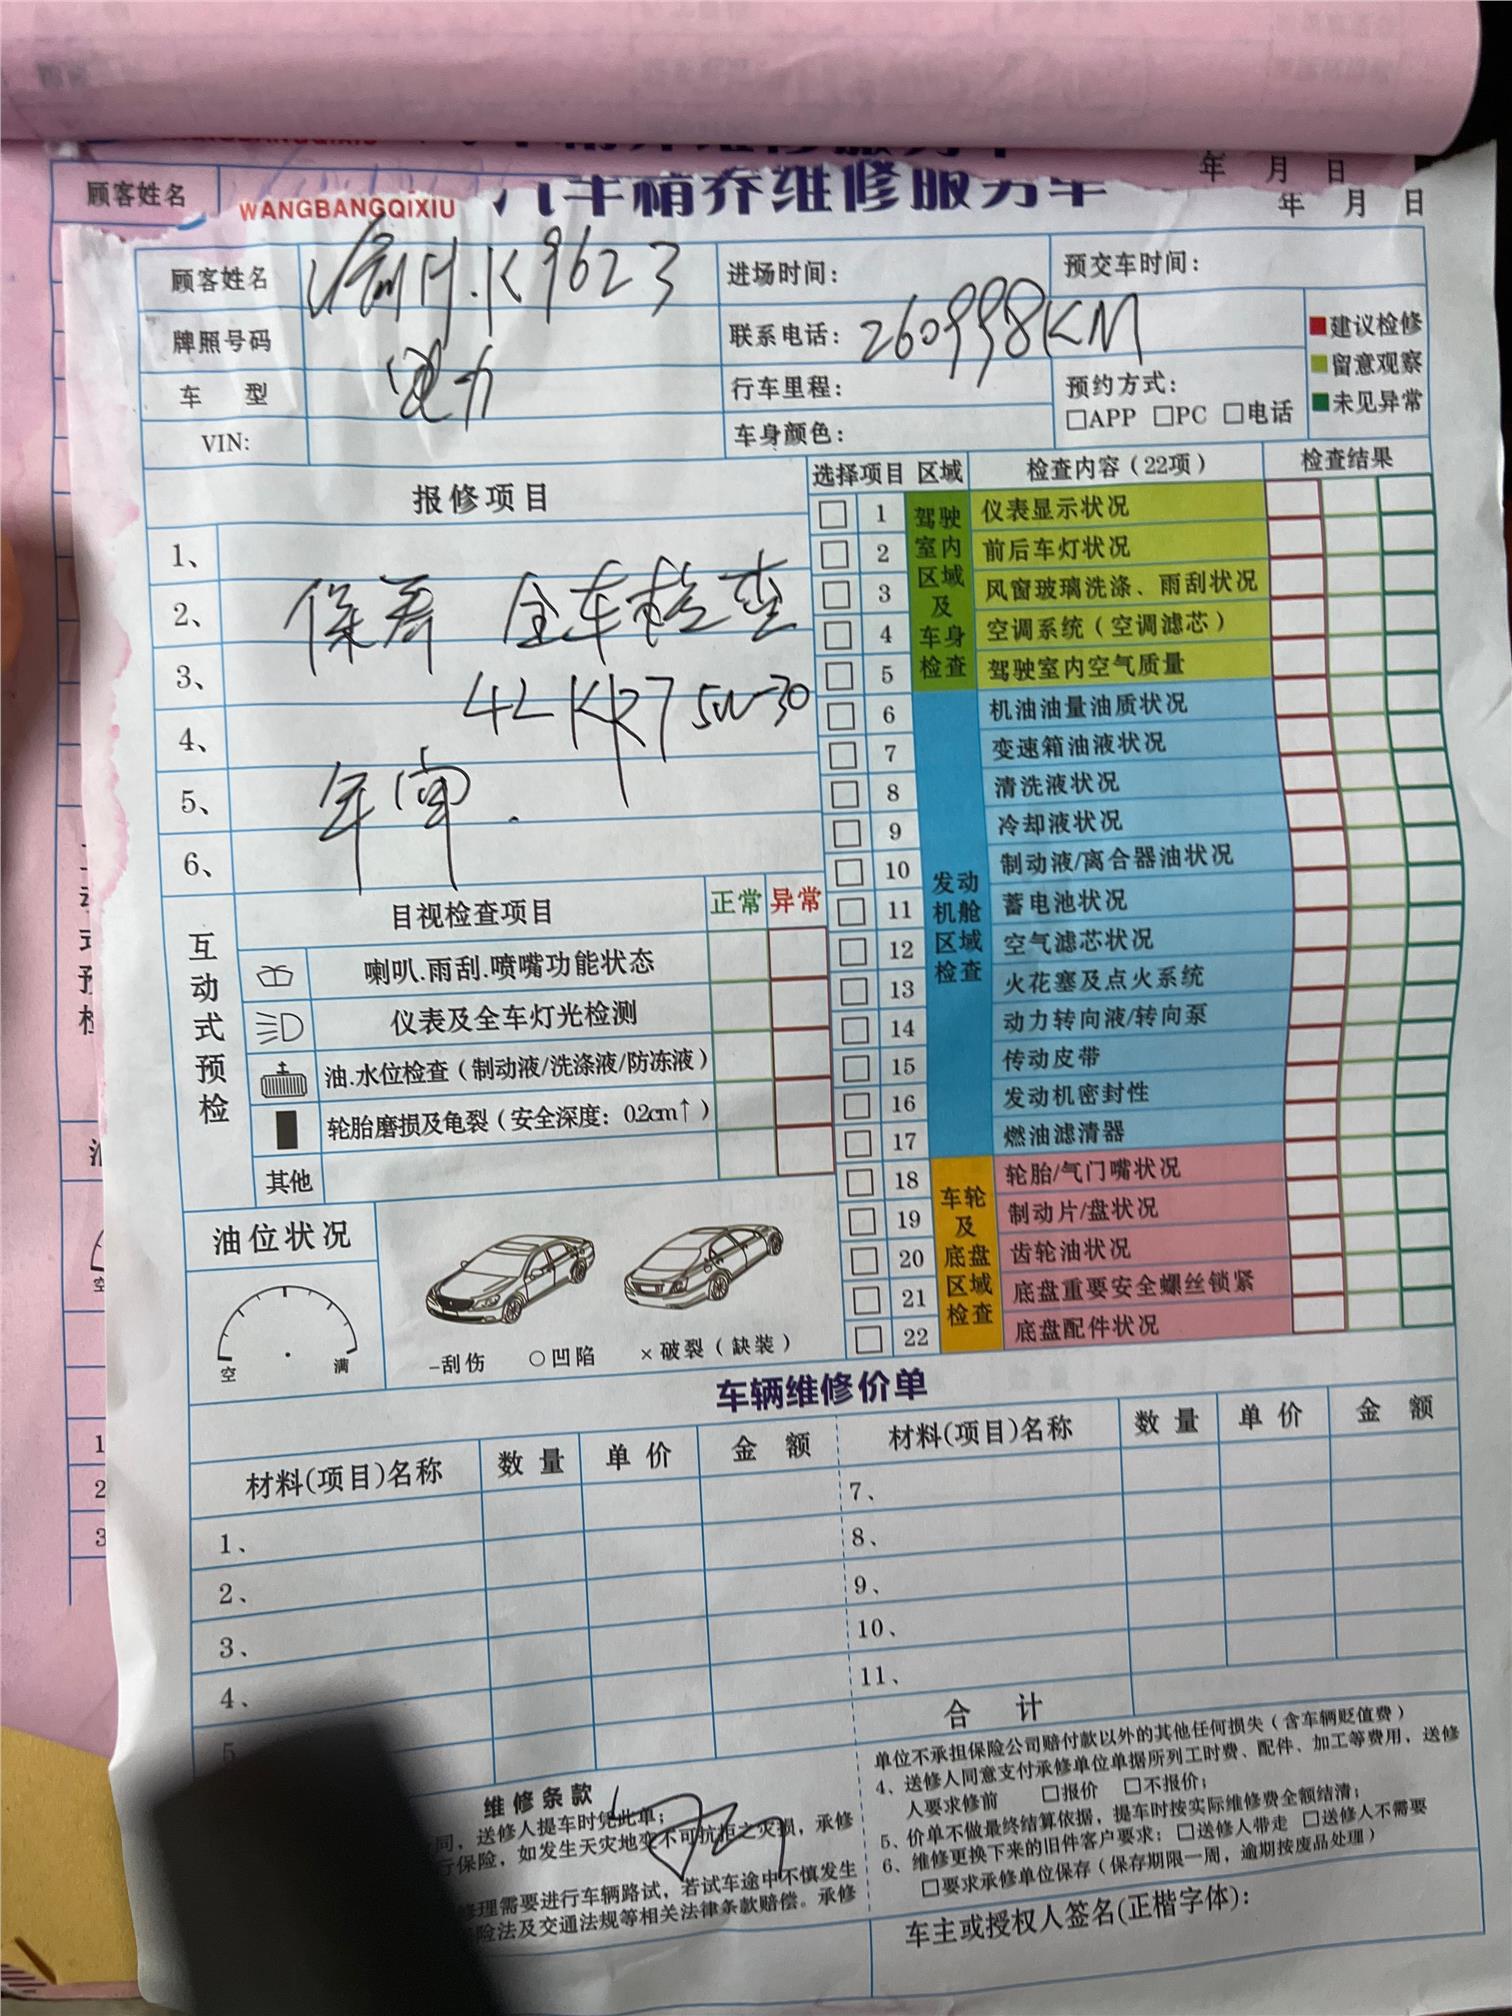 年 月 日
顾客姓名
WANGBANGQIXIU 汽车精养维修服务单
年 月 日
顾客姓名 渝H.K9623 进场时间: 预交车时间:
牌照号码 联系电话: 260998KM
车 型 行车里程: 预约方式:
□APP □PC □电话
VIN: 车身颜色:
■建议检修
■留意观察
■未见异常
报修项目
1、
2、 保养 全车检查
3、
4、 4L KR7 5W-30
5、 年审.
6、
选择项目 区域 检查内容（22项） 检查结果
驾驶室内区域及车身检查
□ 1 仪表显示状况
□ 2 前后车灯状况
□ 3 风窗玻璃洗涤、雨刮状况
□ 4 空调系统（空调滤芯）
□ 5 驾驶室内空气质量
发动机舱区域检查
□ 6 机油油量油质状况
□ 7 变速箱油液状况
□ 8 清洗液状况
□ 9 冷却液状况
□ 10 制动液/离合器油状况
□ 11 蓄电池状况
□ 12 空气滤芯状况
□ 13 火花塞及点火系统
□ 14 动力转向液/转向泵
□ 15 传动皮带
□ 16 发动机密封性
□ 17 燃油滤清器
车轮及底盘区域检查
□ 18 轮胎/气门嘴状况
□ 19 制动片/盘状况
□ 20 齿轮油状况
□ 21 底盘重要安全螺丝锁紧
□ 22 底盘配件状况
互动式预检
目视检查项目 正常 异常
喇叭.雨刮.喷嘴功能状态
仪表及全车灯光检测
油.水位检查（制动液/洗涤液/防冻液）
轮胎磨损及龟裂（安全深度：0.2cm↑）
其他
油位状况
空 满
-刮伤 ○凹陷 ×破裂（缺装）
车辆维修价单
材料(项目)名称 数量 单价 金额 材料(项目)名称 数量 单价 金额
1、 7、
2、 8、
3、 9、
4、 10、
5 11、
合计
维修条款
同，送修人提车时凭此单；
行保险，如发生天灾地变不可抗拒之灾损，承修
修理需要进行车辆路试，若试车途中不慎发生
险法及交通法规等相关法律条款赔偿。承修
单位不承担保险公司赔付款以外的其他任何损失（含车辆贬值费）
4、送修人同意支付承修单位单据所列工时费、配件、加工等费用，送修
人要求修前 □报价 □不报价；
5、价单不做最终结算依据，提车时按实际维修费全额结清；
6、维修更换下来的旧件客户要求：□送修人带走 □送修人不需要
□要求承修单位保存（保存期限一周，逾期按废品处理）
车主或授权人签名(正楷字体)：